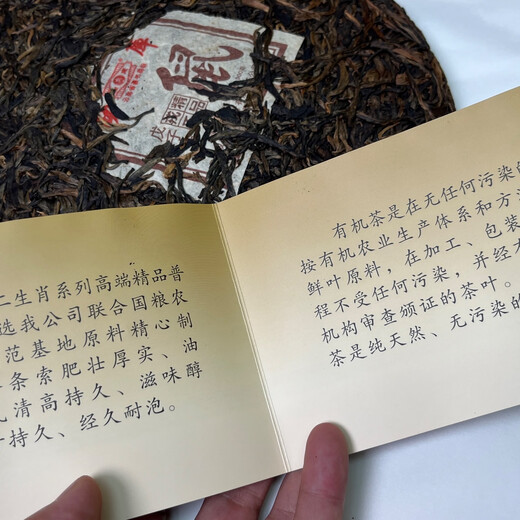 鼠
精品
戊子
二生肖系列高端精品普
选我公司联合国粮农
范基地原料精心制
条索肥壮厚实、油
清高持久、滋味醇
持久、经久耐泡。
有机茶是在无任何污染
按有机农业生产体系和方
鲜叶原料，在加工、包装
程不受任何污染，并经
机构审查颁证的茶叶。
茶是纯天然、无污染的